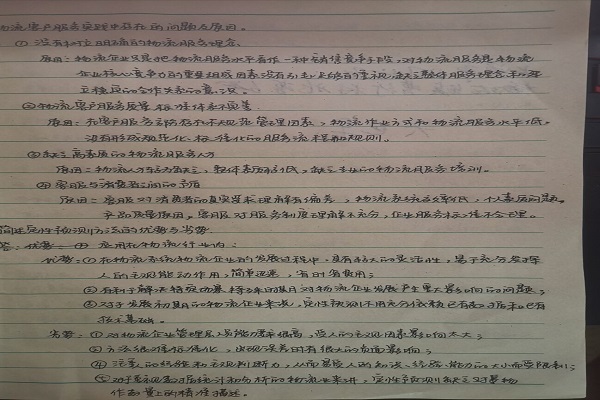 物流客户服务实践中存在的问题及原因。
① 没有树立明确的物流服务理念
原因：物流企业只是把物流服务水平看作一种销售竞争手段，对物流服务是物流
企业核心竞争力的重要组成因素没有引起足够的重视，缺乏整体服务理念和
立稳定的合作关系的意识
②物流客户服务质量标准体系不完善
原因：在客户服务方面存在不规范管理因素，物流作业方式和物流服务水平低。
没有形成规范化、标准化的服务流程和规则。
③缺乏高素质的物流服务人才
原因：物流人才缺乏，整体素质较低，缺乏专业的物流服务培训。
④客服与消费者之间的矛盾
原因：客服对消费者的真实需求理解有偏差，物流效率低，个人素质问题。
产品质量原因，客服对服务制度理解不充分，企业服务标准不合理。
简述定性预测方法的优势与劣势
答：优势：① 应用在物流行业内：
优势：①在物流系统物流企业的发展过程中，具有较大的灵活性，易于充分发挥
人的主观能动作用，简单迅速，省时省费用；
②有利于解决特殊场景 对物流企业发展产生重大影响的问题；
③对于发展初期的物流企业来说，定性预测不用充分依赖已有数据和已有
技术基础。
劣势：①对物流企业管理层人员能力要求很高，受人的主观因素影响太大；
②方法很难标准化，出现误差时有很大的负面影响；
③注意人的经验和主观判断力，从而易受人的知识、经验、能力的大小而受限制；
④对重视数据统计和分析的物流业来讲，定性预测缺乏对事物
作数量上的精准描述。